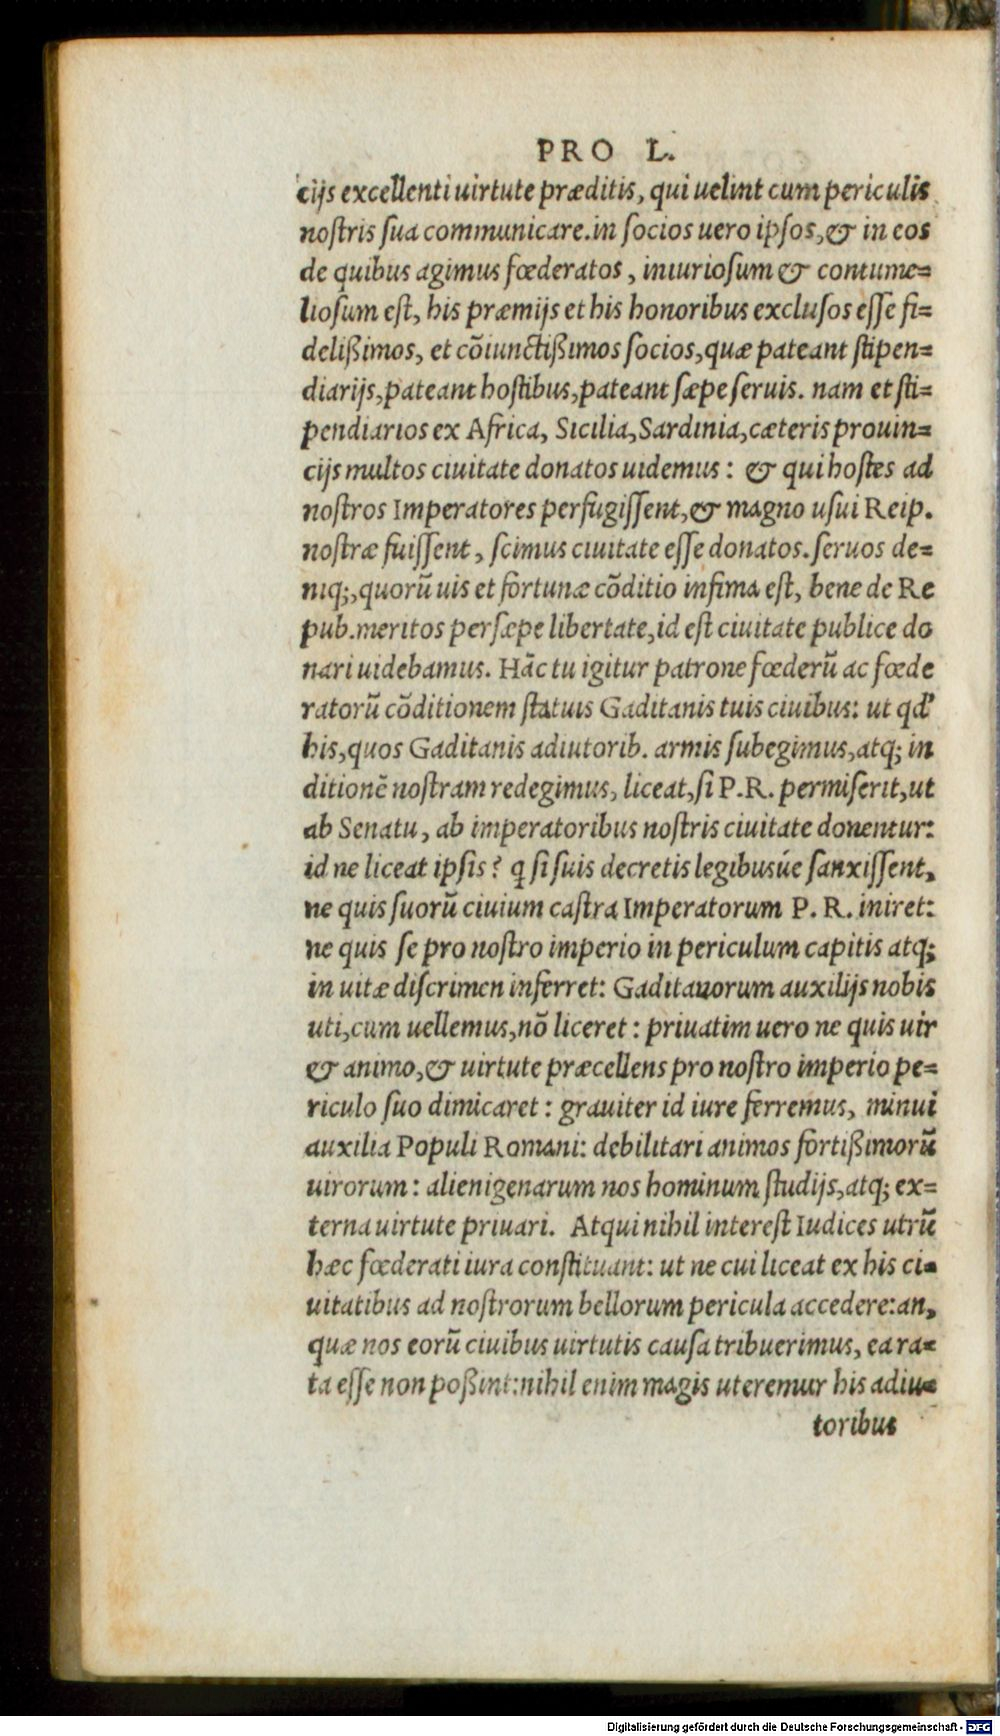 PRO L.
cijs excellenti uirtute præditis, qui uelint cum periculis
nostris sua communicare. in socios uero ipsos, & in eos
de quibus agimus fœderatos, iniuriosum & contume=
liosum est, his præmijs et his honoribus exclusos esse fi=
delißimos, et cõiunctißimos socios, quæ pateant stipen=
diarijs, pateant hostibus, pateant sæpe seruis. nam et sti=
pendiarios ex Africa, Sicilia, Sardinia, cæteris prouin=
cijs multos ciuitate donatos uidemus: & qui hostes ad
nostros Imperatores perfugissent, & magno usui Reip.
nostræ fuissent, scimus ciuitate esse donatos. seruos de=
niq;, quorũ uis et fortunæ cõditio infima est, bene de Re
pub. meritos persæpe libertate, id est ciuitate publice do
nari uidebamus. Hãc tu igitur patrone fœderũ ac fœde
ratorũ cõditionem statuis Gaditanis tuis ciuibus: ut qd'
his, quos Gaditanis adiutorib. armis subegimus, atq; in
ditionẽ nostram redegimus, liceat, si P. R. permiserit, ut
ab Senatu, ab imperatoribus nostris ciuitate donentur:
id ne liceat ipsis? q si suis decretis legibusúe sanxissent,
ne quis suorũ ciuium castra Imperatorum P. R. iniret:
ne quis se pro nostro imperio in periculum capitis atq;
in uitæ discrimen inferret: Gaditauorum auxilijs nobis
uti, cum uellemus, nõ liceret: priuatim uero ne quis uir
& animo, & uirtute præcellens pro nostro imperio pe=
riculo suo dimicaret: grauiter id iure ferremus, minui
auxilia Populi Romani: debilitari animos fortißimorũ
uirorum: alienigenarum nos hominum studijs, atq; ex=
terna uirtute priuari. Atqui nihil interest Iudices utrũ
hæc fœderati iura constituant: ut ne cui liceat ex his ci=
uitatibus ad nostrorum bellorum pericula accedere: an,
quæ nos eorũ ciuibus uirtutis causa tribuerimus, ea ra=
ta esse non poßint: nihil enim magis uteremur his adiu=
toribus
Digitalisierung gefördert durch die Deutsche Forschungsgemeinschaft - DFG